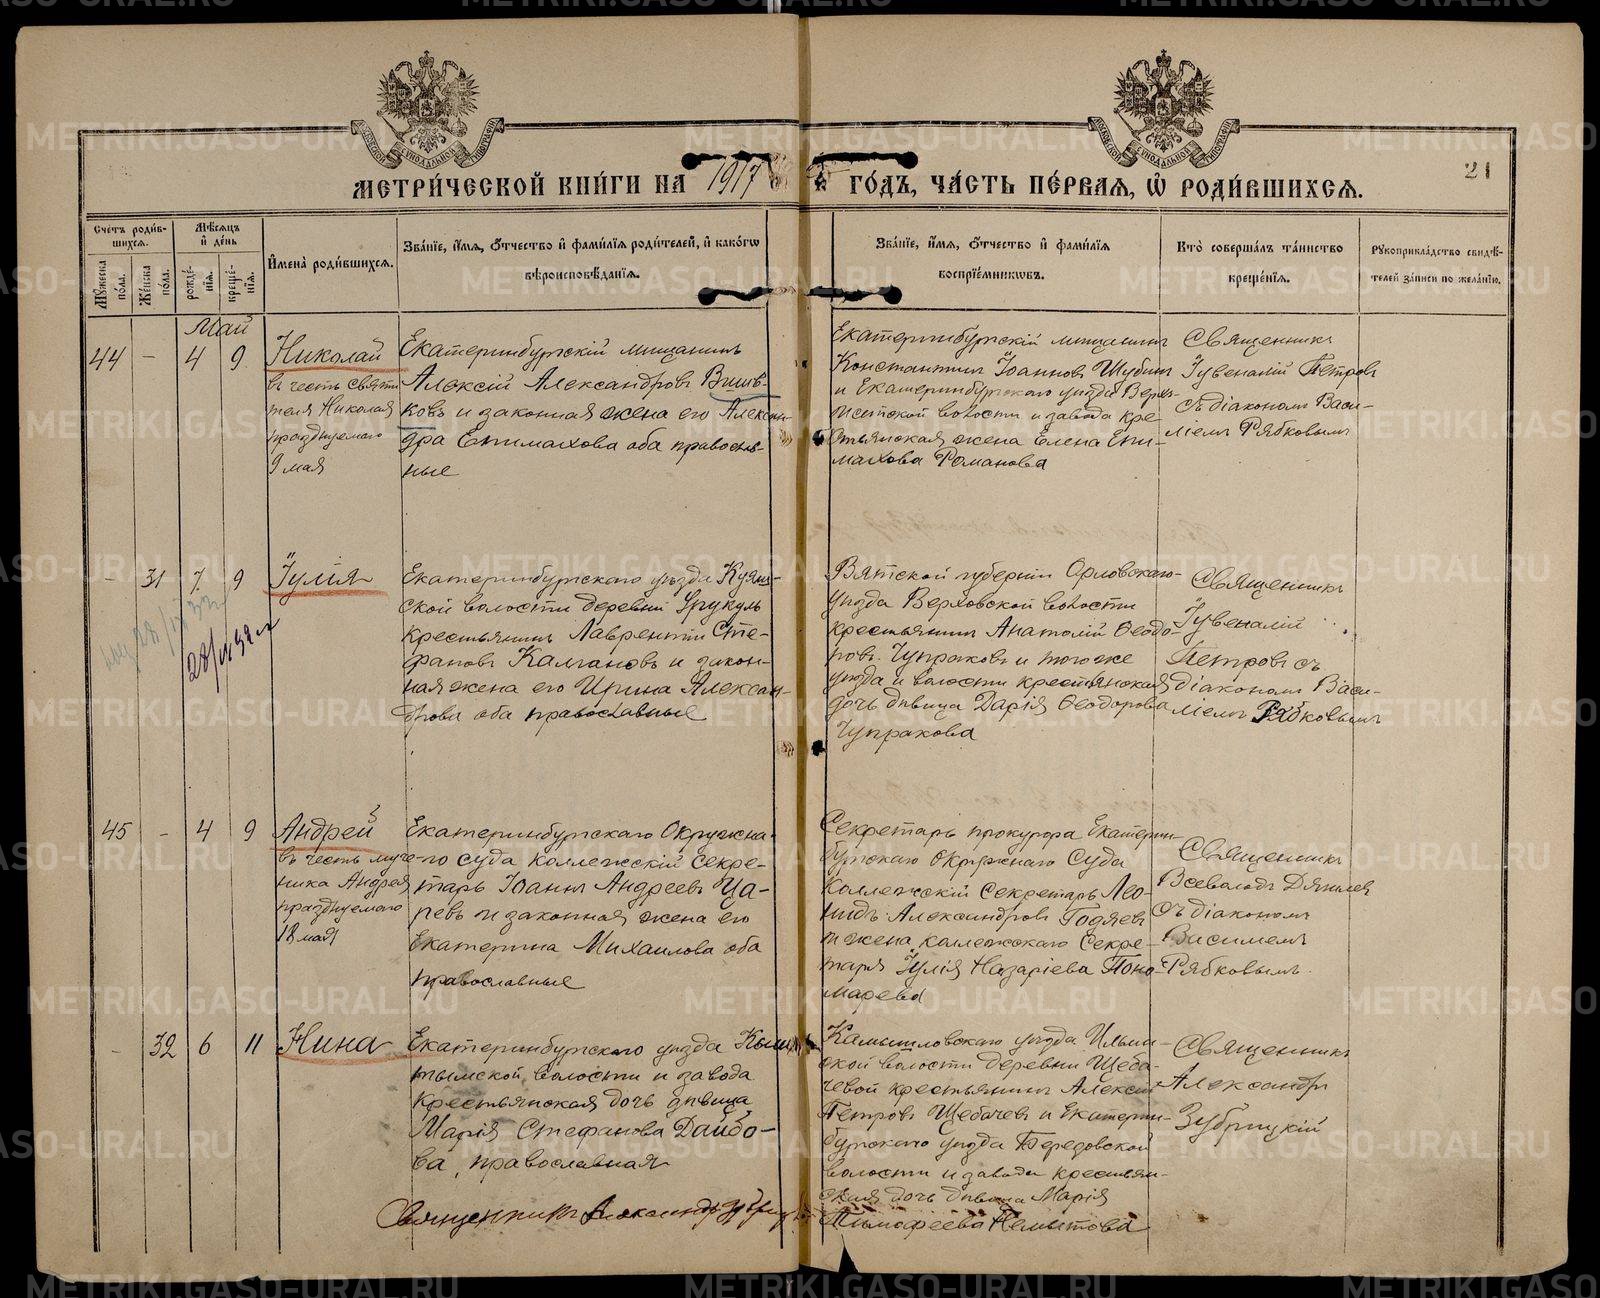 МЕТРИ́ЧЕСКОЙ КНИ́ГИ НА 1917 ГО́ДЪ, ЧА́СТЬ ПЕ́РВАЯ, Ѡ РОДИ́ВШИХСЯ.
21
Сче́тъ роди́в-
шихся.
Му́жеска по́ла.
Же́нска по́ла.
Мѣ́сяцъ и де́нь
рожде́-
нїя.
креще́-
нїя.
Имена̀ роди́вшихся.
Зва́нїе, и́мя, о́тчество и фами́лїя роди́телей, и како́гѡ
вѣроисповѣ́данїя.
Зва́нїе, и́мя, о́тчество и фами́лїя
воспрїе́мникѡвъ.
Кто̀ соверша́лъ та́инство
креще́нїя.
Рукоприкла́дство свидѣ́-
телей за́писи по жела́нїю.
Май
44 - 4 9
Николай
въ честь Святи
теля Николая
празднуемаго
9 мая
Екатеринбургскій мѣщанинъ
Алексій Александровъ Вишв-
ковъ и законная жена его Алексан-
дра Епимахова оба православ-
ные
Екатеринбургскій мѣщанинъ
Константинъ Іоанновъ Шубинъ
и Екатеринбургскаго уѣзда Верх-
Исетской волости и завода кре-
стьянская жена Елена Епи-
махова Романова
Священникъ
Іувеналій Петровъ
съ діакономъ Васи-
ліемъ Рябковымъ
- 31 7 9
Іулія
Екатеринбургскаго уѣзда Куяш-
ской волости деревни Урукуль
крестьянинъ Лаврентій Сте-
фановъ Калгановъ и закон-
ная жена его Ирина Алексан-
дрова оба православные
Вятской губерніи Орловскаго
уѣзда Верховской волости
крестьянинъ Анатолій Ѳеодо-
ровъ Чупраковъ и того же
уѣзда и волости крестьянская
дочь дѣвица Дарія Ѳеодорова
Чупракова
Священникъ
Іувеналій
Петровъ съ
діакономъ Васи-
ліемъ Рябковымъ
45 - 4 9
Андрей
въ честь муче-
ника Андрея
празднуемаго
18 мая
Екатеринбургскаго Окружна-
го суда коллежскій секре-
тарь Іоаннъ Андреевъ Ца-
ревъ и законная жена его
Екатерина Михаилова оба
православные
Секретарь прокурора Екатерин-
бургскаго Окружнаго Суда
Коллежскій Секретарь Лео-
нидъ Александровъ Годяевъ
и жена коллежскаго Секре-
таря Іулія Назаріева Поно-
марева
Священникъ
Всеволодъ Дягилев
съ діакономъ
Василіемъ
Рябковымъ
- 32 6 11
Нина
Екатеринбургскаго уѣзда Кыш-
тымской волости и завода
крестьянская дочь дѣвица
Марія Стефанова Дайбо-
ва, православная
Камышловскаго уѣзда Ильин-
ской волости деревни Щеба-
чевой крестьянинъ Алексій
Петровъ Щебачевъ и Екатерин-
бургскаго уѣзда Березовской
волости и завода крестьян-
ская дочь дѣвица Марія
Тимофеева Немытова
Священникъ
Александръ
Зубрицкій
Священникъ Александръ Зубрицкій